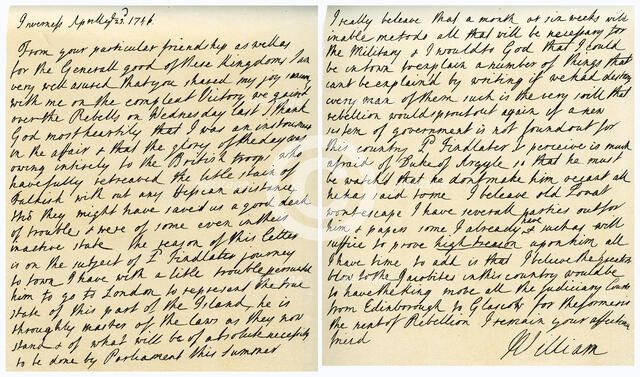 Inverness Aprill ye 23d. 1746.
From your particular friendship as well as
for the Generall good of these Kingdoms I am
very well assured that you shared my joy
with me on the compleat Victory we gained
over the Rebells on Wednesday last I thank
God most heartily that I was an instrument
in the affair & that the glory of the day was
owing intirely to the British troops who
have fully retreaved the litle stain of
Falkirk with out any Hessian asistance
tho they might have saved us a good deal
of trouble & were of some even in their
inactive state the reason of this letter
is on the subject of Ld Findlaters journey
to town I have with a litle trouble persuaded
him to go to London to represent the true
state of this part of the Island, he is
throughly master of the laws as they now
stand & of what will be of absolute necessity
to be done by Parliament this Summer
I really beleave that a month or six weeks will
inable me to do all that will be necessary for
the Military & I would to God that I could
be in town to explain a number of things that
cant be explain'd by writing if we had destroy
every man of them such is the very soil that
rebellion would sprout out again if a new
sistem of government is not found out for
this country Ld Findlater I perceive is much
afraid of Duke of Argyle so that he must
be watch'd that he dont make him recant all
he has said to me I beleave old Lovat
wont escape I have severall parties out for
him & papers some I already have & such as will
suffice to prove high treason upon him all
I have time to add is that I believe the greatest
blow to the Jacobites in this country would be
to have the King move all the Judiciary Courts
from Edinborough to Glascow for the former is
the nest of Rebellion I remain your affectionate
friend
William